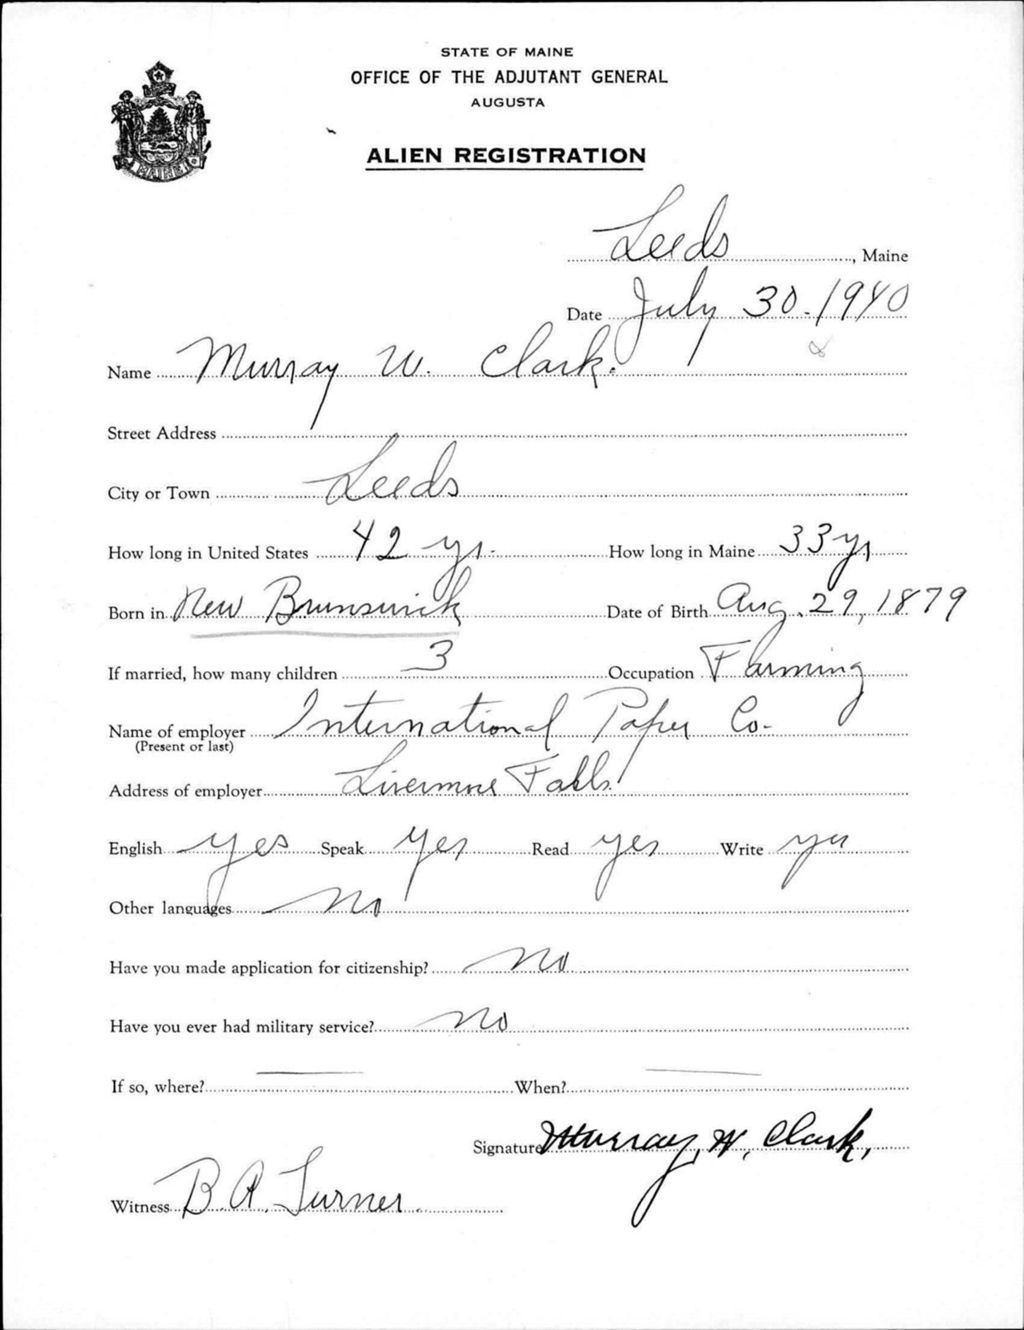 STATE OF MAINE
OFFICE OF THE ADJUTANT GENERAL
AUGUSTA
ALIEN REGISTRATION
MAINE
Leeds, Maine
Date July 30. 1940
Name Murray W. Clark.
Street Address
City or Town Leeds
How long in United States 42 yrs. How long in Maine 33 yrs
Born in New Brunswick Date of Birth Aug. 29, 1879
If married, how many children 3 Occupation Farming
Name of employer International Paper Co.
(Present or last)
Address of employer Livermore Falls.
English yes Speak yes Read yes Write yes
Other languages No
Have you made application for citizenship? No
Have you ever had military service? No
If so, where? — When? —
Signature Murray, W, Clark,
Witness B. A. Turner.